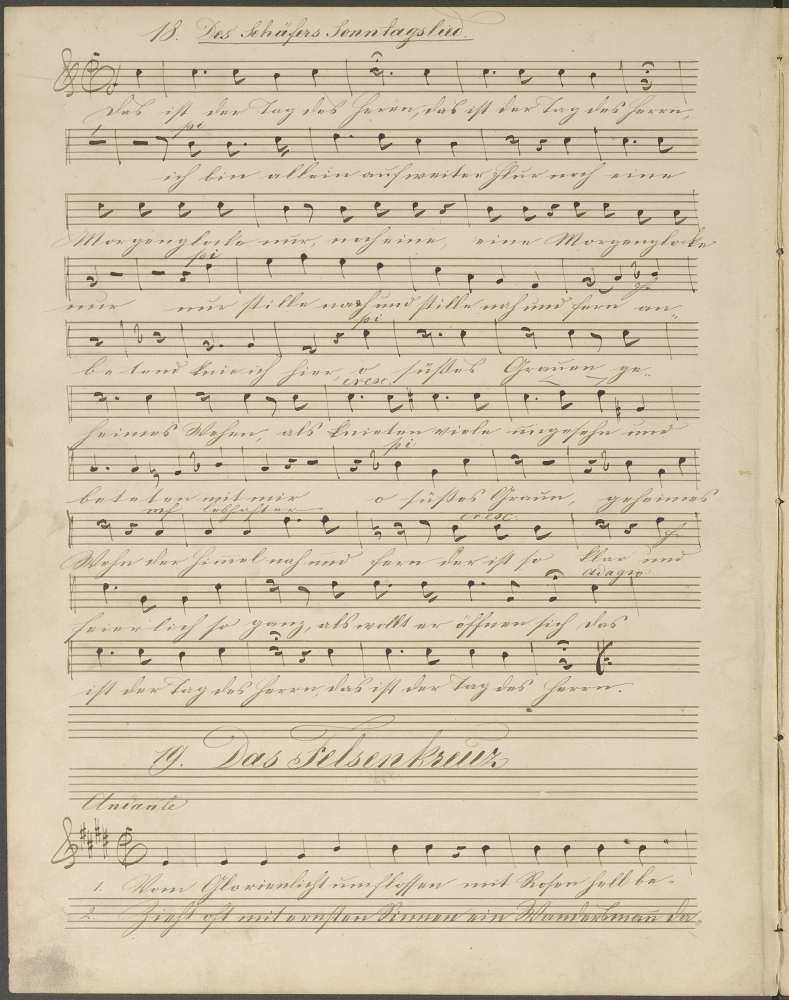 18. Des Schäfers Sonntagslied.
Das ist der Tag des Herrn, das ist der Tag des Herrn,
pi
ich bin allein auf weiter Flur noch eine
Morgenglocke nur, noch eine, eine Morgenglocke
pi
nur nur stille nah und stille nah und fern an-
pi
betend knie ich hier, o süßes Grauen ge-
cresc.
heimes Wehen, als knieten viele ungesehn und
pi
beteten mit mir o süßes Graun, geheimes
mf lebhafter cresc.
Wehn der Himel nah und fern der ist so klar und
adagio
feierlich so ganz, als wollt er öffnen sich das
ist der Tag des Herrn, das ist der Tag des Herrn.
19. Das Felsenkreuz
Andante
1. Vom Glorienlicht umflossen mit Rosen hell be-
2. Zieht oft mit ernsten Sinnen ein Wandersmann da-